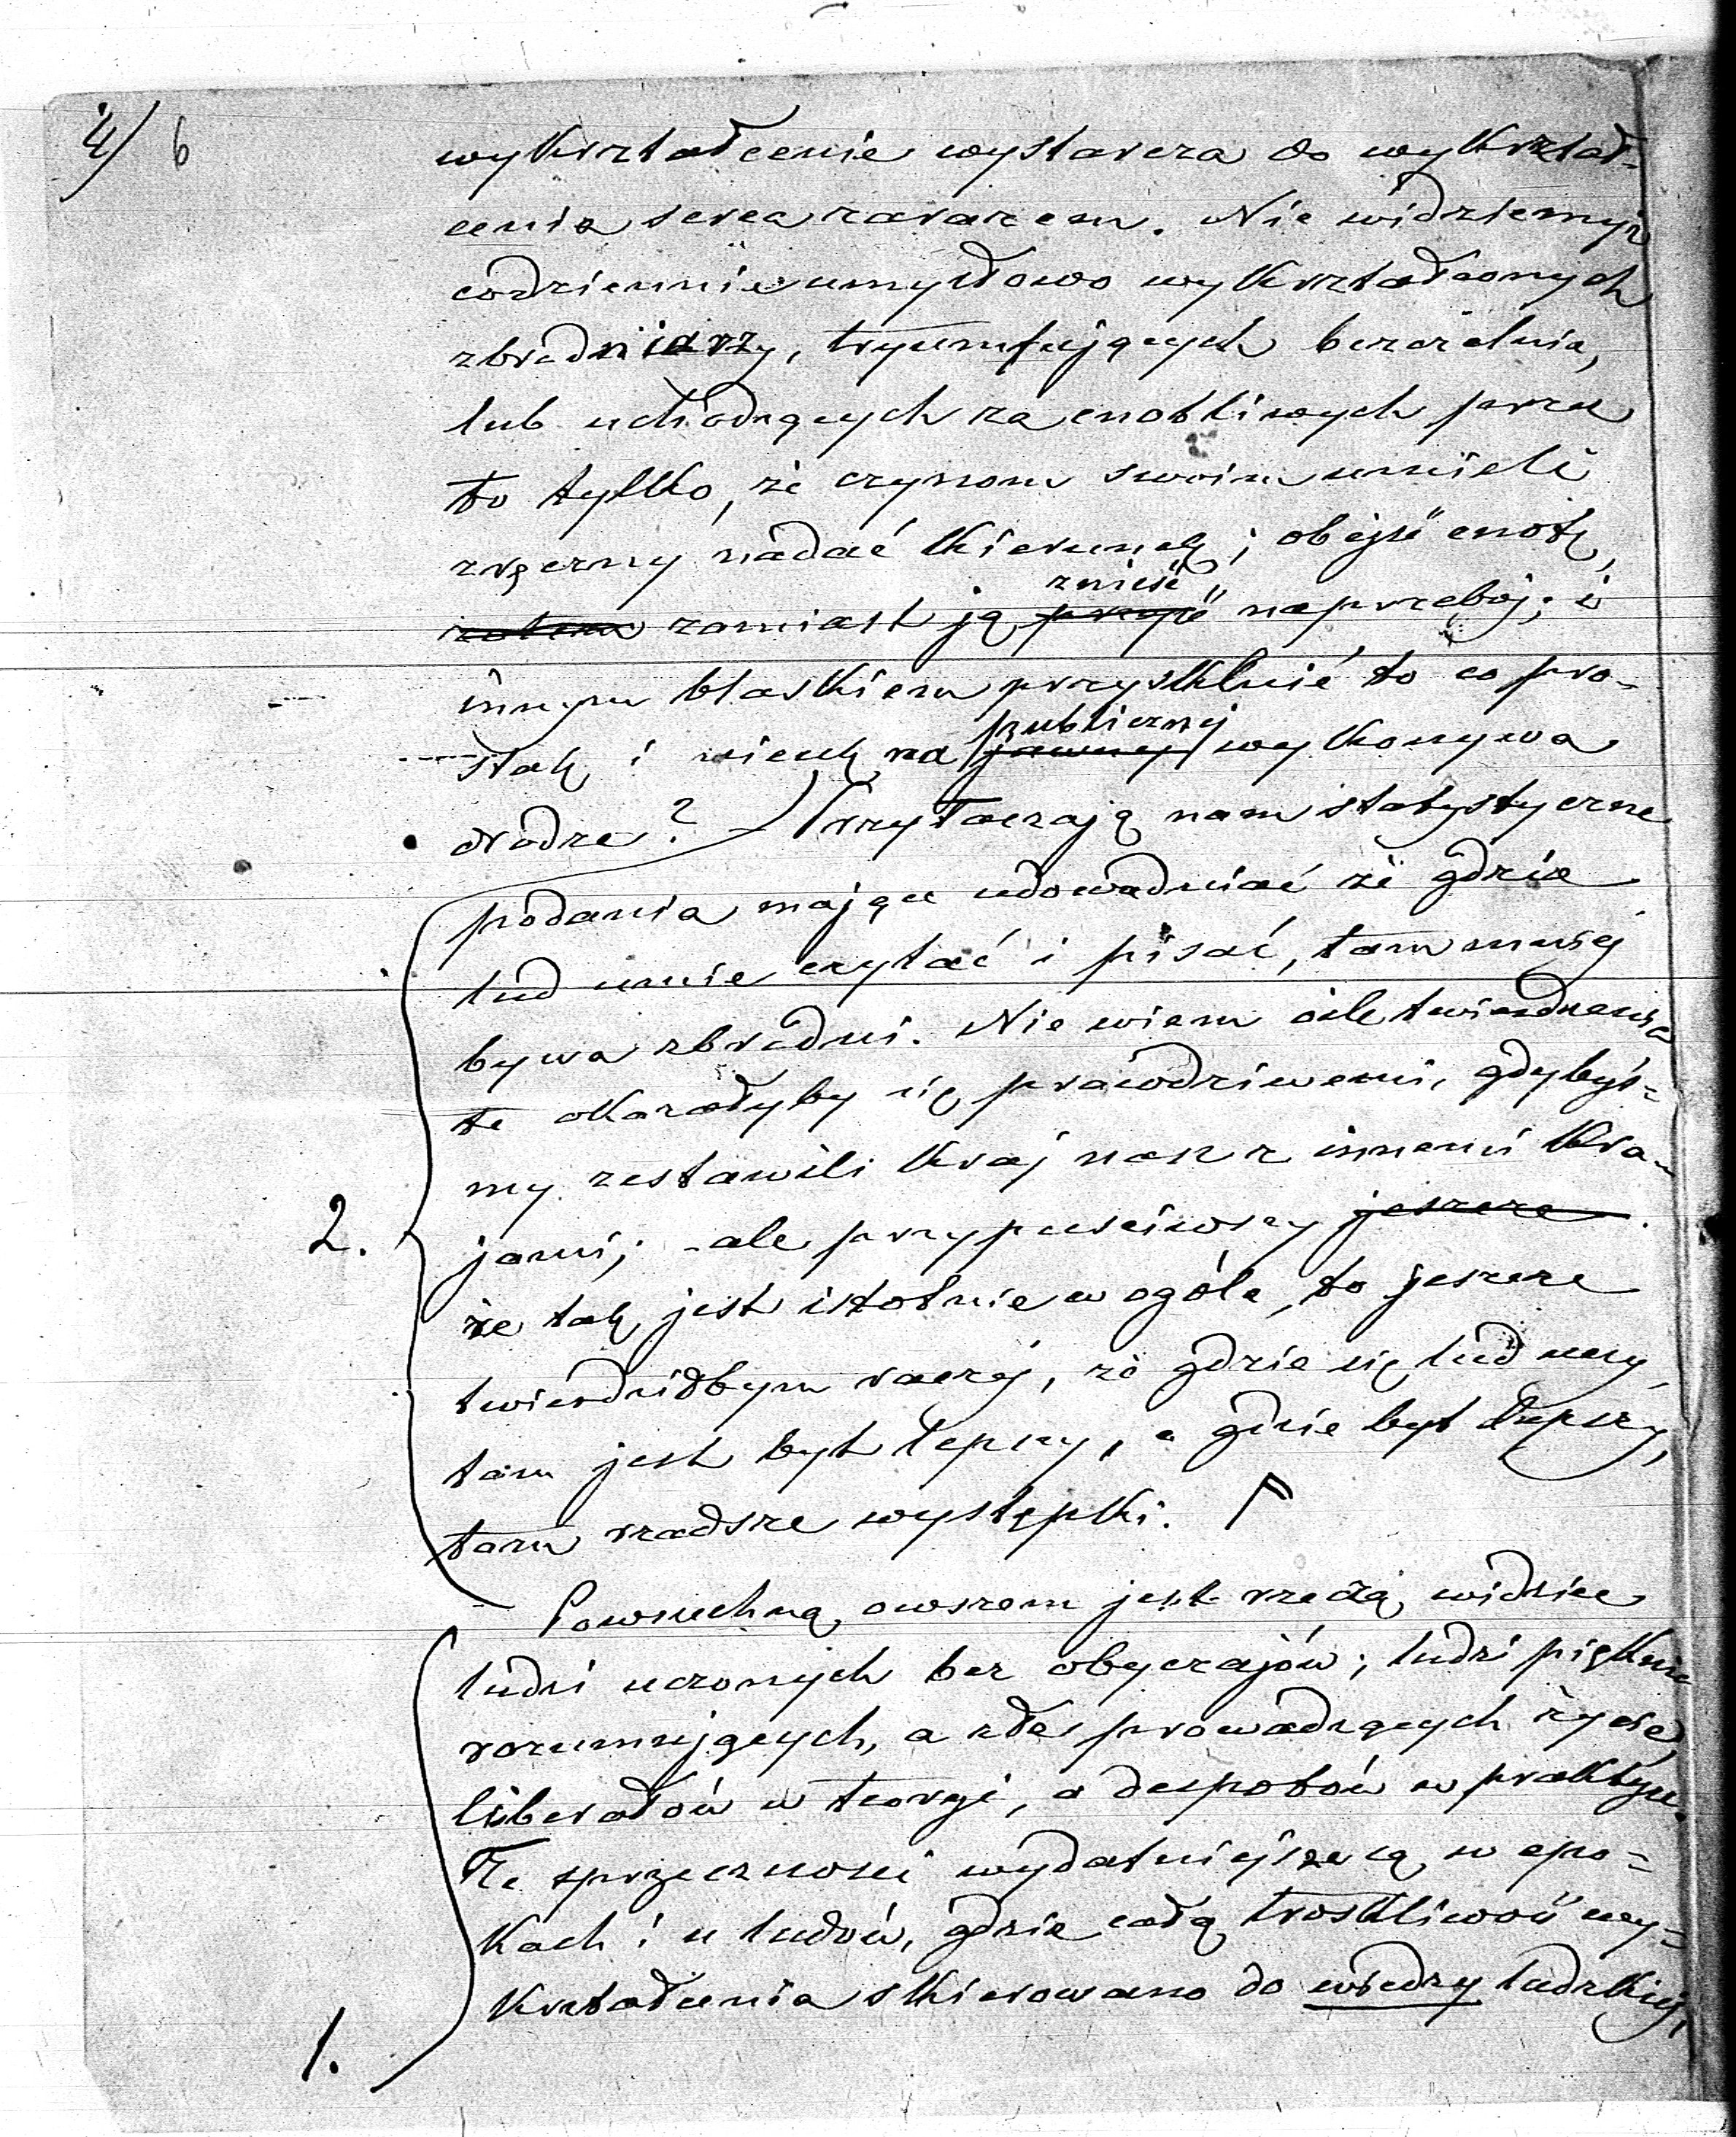 4/ 6
wykształcenie wystarcza do wykształ-
cenia serca zarazem. Nie widziemyż
codziennie umysłowo wykształconych
zbrodniarzy, tryumfujących bezczelnie,
lub uchodzących za cnotliwych przez
to tylko, że czynom swoim umieli
zręczny nadać kierunek; obejść cnotę,
zamiast ją znieść naprzebój; i
innym blaskiem przysklnić to co pro-
stak i nieuk na publicznej wykonywa
drodze? Przytaczają nam statystyczne
podania mające udowadniać że gdzie
lud umie czytać i pisać, tam mniéj
bywa zbrodni. Nie wiem oile twierdzenia
te okazałyby się prawdziwemi, gdybyś-
my zestawili kraj nasz z innemi kra-
jami; - ale przypuściwszy jeszcze
że tak jest istotnie w ogóle, to jeszcze
twierdziłbym raczéj, że gdzie się lud uczy,
tam jest byt lepszy, a gdzie byt lepszy,
tam rzadsze występki.
2.
Powszechną owszem jest rzeczą, widzieć
ludzi uczonych bez obyczajów; ludzi pięknie
rozumujących, a źle prowadzących życie,
liberałów w teoryi, a despotów w praktyce.
Te sprzeczności wydatniejsze są w epo-
kach i u ludów, gdzie całą troskliwość wy-
kształcenia skierowano do wiedzy ludzkiéj,
1.